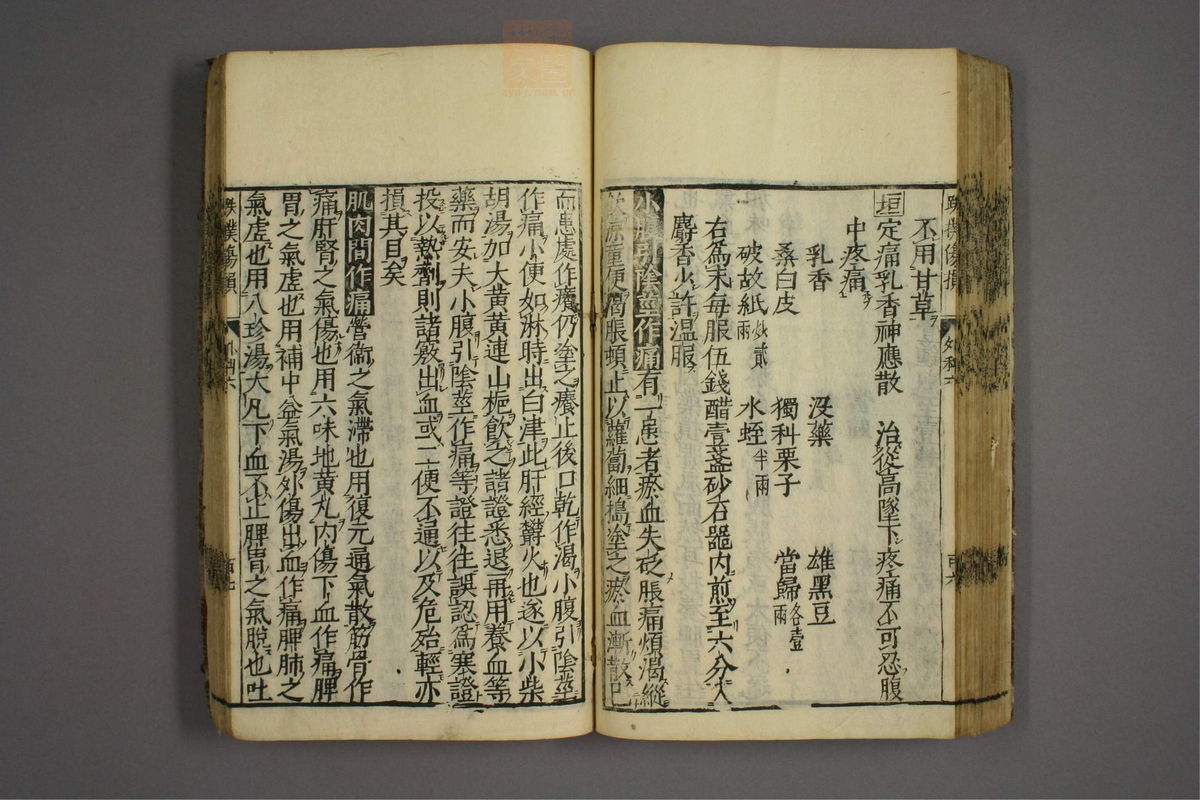 不用甘草
垣定痛乳香神應散 治從高墜下疼痛不可忍腹
中疼痛
乳香 沒藥 雄黑豆
桑白皮 獨科栗子 當歸各壹兩
破故紙炒貳兩 水蛭半兩
右爲末每服伍錢醋壹盞砂石器內煎至六分入
麝香少許温服
小腹引陰莖作痛有一患者瘀血失砭脹痛煩渴縱
飲凉童便渴脹頓止以蘿蔔細搗塗之瘀血漸散已
而患處作癢仍塗之癢止後口乾作渴小腹引陰莖
作痛小便如淋時出白津此肝經欝火也遂以小柴
胡湯加大黃黃連山梔飲之諸證悉退再用養血等
藥而安夫小腹引陰莖作痛等證往往誤認爲寒證
投以熱劑則諸竅出血或二便不通以及危殆輕亦
損其目矣
肌肉間作痛營衞之氣滯也用復元通氣散筋骨作
痛肝腎之氣傷也用六味地黃丸內傷下血作痛脾
胃之氣虛也用補中益氣湯外傷出血作痛脾肺之
氣虛也用八珍湯大凡下血不止脾胃之氣脫也吐
跌撲傷損
外科六